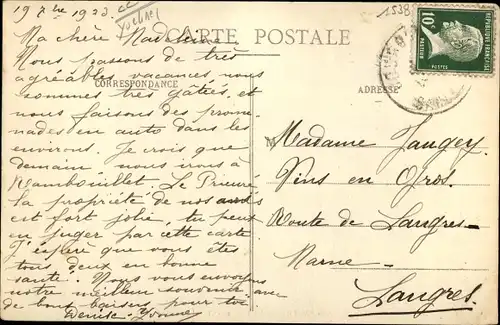 19 7bre 1923
CARTE POSTALE
Ma chère Madeleine
Nous passons de très
agréables vacances nous
sommes très gâtées, et
CORRESPONDANCE
nous faisons des prome-
nades en auto dans les
environs. Je crois que
demain nous irons à
Rambouillet. Le Prieuré
la propriété de nos amis
est fort jolie, tu peux
en juger par cette carte
J'espère que vous êtes
tous deux en bonne
santé. Nous vous envoyons
notre meilleur souvenir avec
de bons baisers pour toi
Denise - Yvonne
1538
10c
REPUBLIQUE FRANÇAISE
PASTEUR
POSTES
ADRESSE
Madame Jaugey
Vins en Gros
Route de Langres
Marne
Langres